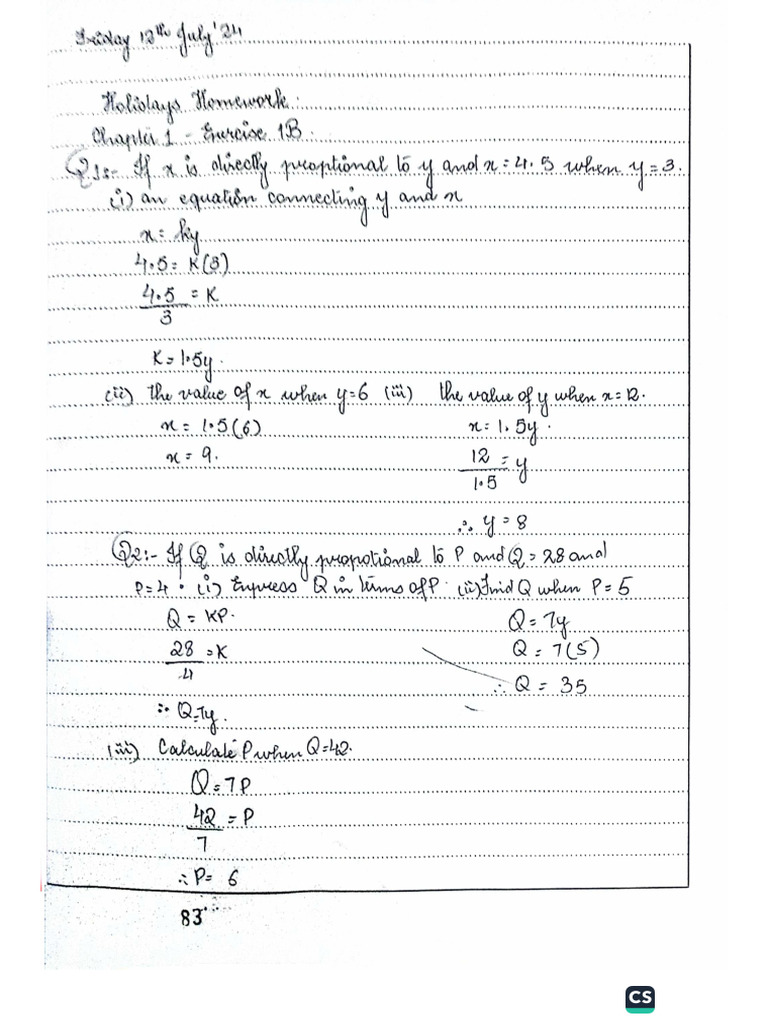 Friday 12th July '24
Holidays Homework.
Chapter 1 - Exercise 1B.
Q1:- If x is directly propotional to y and x = 4.5 when y = 3.
(i) an equation connecting y and x
x = ky
4.5 = K(3)
4.5/3 = K
K = 1.5y.
(ii) the value of x when y=6 (iii) the value of y when x = 12.
x = 1.5(6) x = 1.5y.
x = 9. 12/1.5 = y
∴ y = 8
Q2:- If Q is directly propotional to P and Q = 28 and
P=4. (i) Express Q in terms of P. (ii) Find Q when P = 5
Q = KP. Q = 7y
28/4 = K Q = 7(5)
∴ Q = 35
∴ Q=7y.
(iii) Calculate P when Q=42.
Q = 7P
42/7 = P
∴ P = 6
83
CS